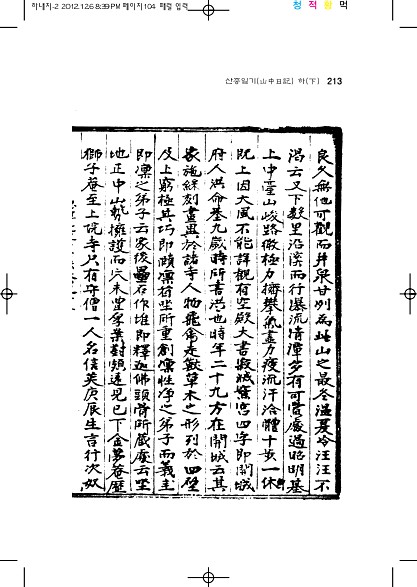 하내지-2 2012.12.6 8:39 PM 페이지104 제팜 입력
청 적 황 먹
산중일기(山中日記) 하(下) 213
良久無他可觀而井泉甘冽為此山之最冬溫夏冷汪汪不
渴云又下數里沿溪而行瀑流淸潭多有可賞處過昭明基
上中臺山峻路微極力攀氣盡力疲流汗洽體十步一休
旣上因大風不能詳觀有空殿大書寂滅宮四字卽開城
府人洪命基九歲時所書洪也時年二十九方在開城云其
家施綵刻畫異於諸寺人物飛禽走獸草木之形列於四壁
及上窮極其巧卽頤凜有坐所重創凜性淨之弟子而義圭
卽凜之弟子云家後疊石作堆卽釋迦佛頭骨所藏處云坐
地正中山勢擁護而穴未堂案對頗遠見已下金夢菴歷
獅子菴至上院寺只有守僧一人名信英庚辰生言行次奴